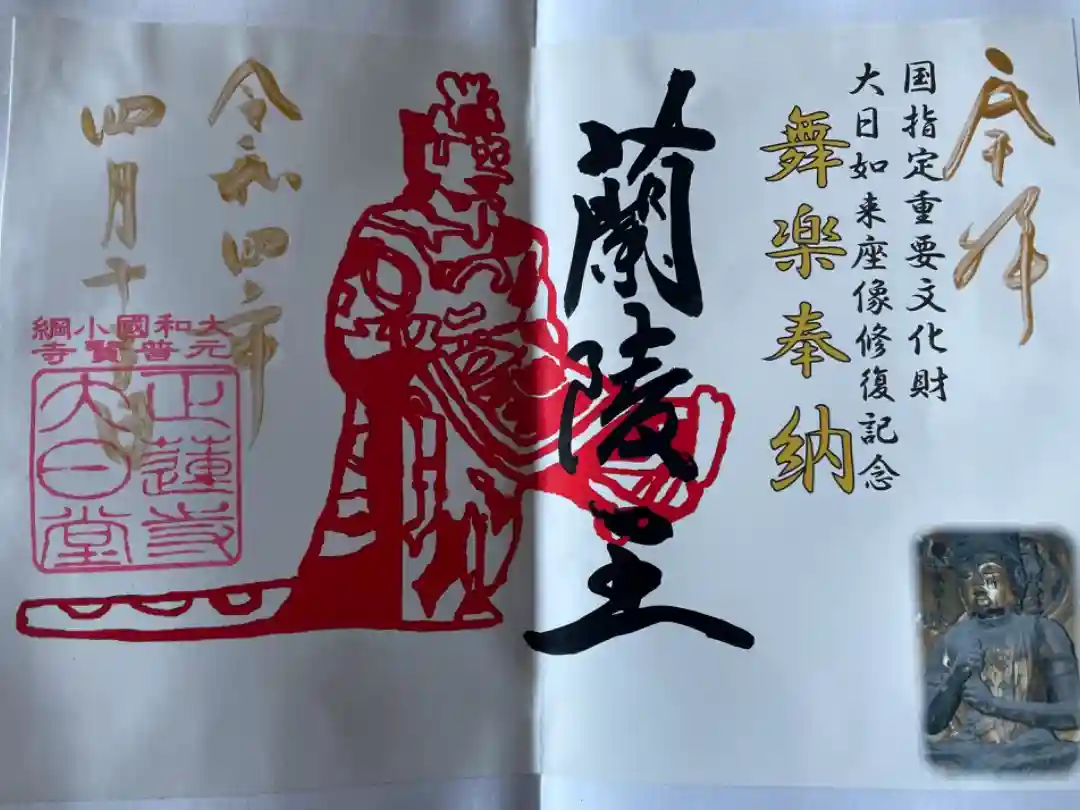 奉拝
国指定重要文化財
大日如来座像修復記念
舞楽奉納
蘭陵王
令和四年
四月十
大和國小綱
元普賢寺
正蓮寺
大日堂